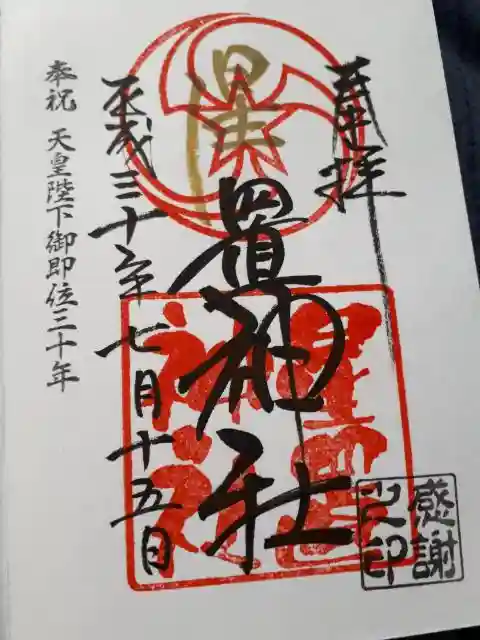 奉拝
置神社
星置
神社
平成三十年七月十五日
奉祝 天皇陛下御即位三十年
感謝
之印